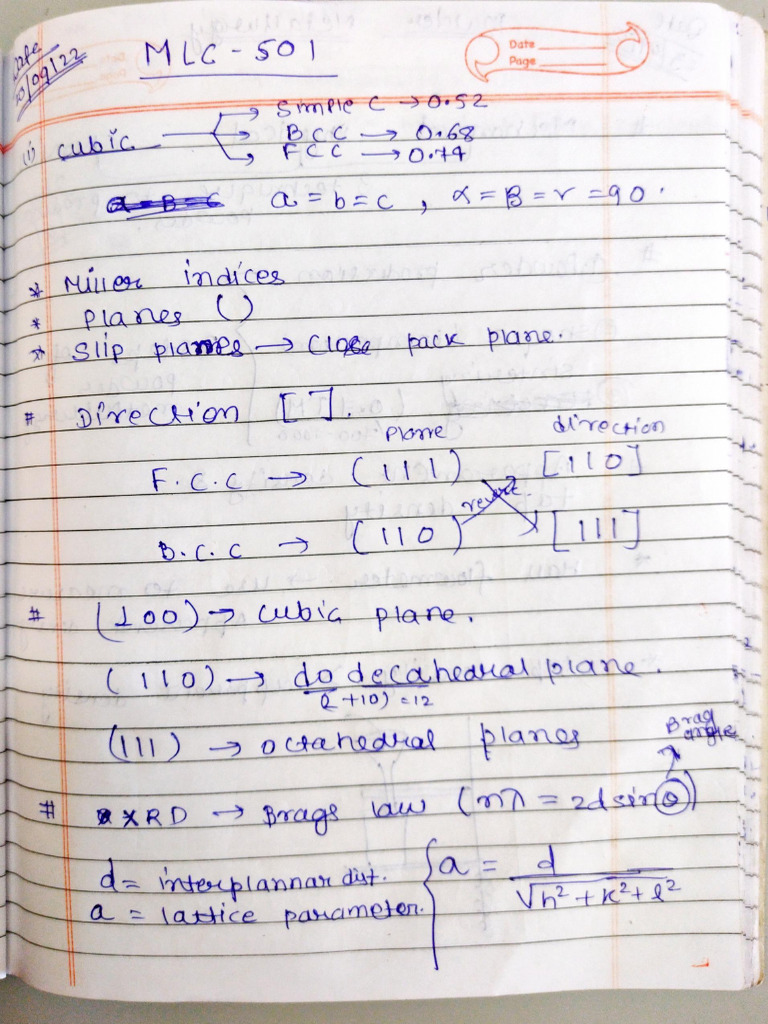 Date
MLC - 501
Date
Page
/09/22
Simple C → 0.52
(i) cubic → BCC → 0.68
FCC → 0.74
a = b = c , α = β = r = 90.
* Miller indices
* planes ( )
* Slip planes → Close pack plane.
# Direction [ ].
plane direction
F.C.C → (111) [110]
revert
B.C.C → (110) [111]
# (100) → cubic plane.
(110) → do decahedral plane.
(2 +10) = 12
(111) → octahedral planes
Brag
angle
# XRD → Brags law (nλ = 2d sinθ)
d = interplannar dist.
a = lattice parameter.
a = d / √h² + k² + l²